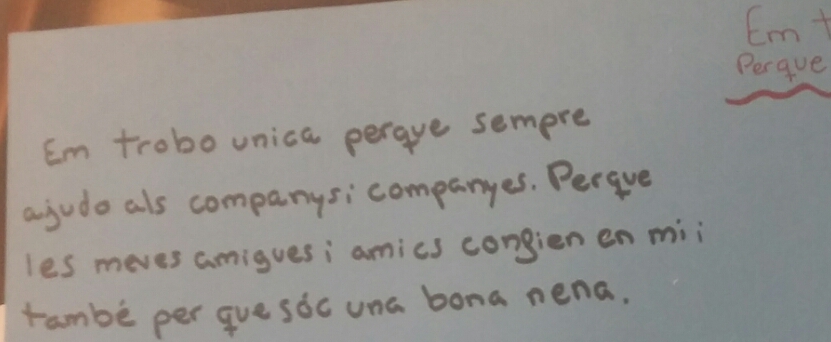 Em t
Perque
Em trobo unica perque sempre
ajudo als companys i companyes. Perque
les meves amigues i amics confien en mi i
també per que sóc una bona nena.